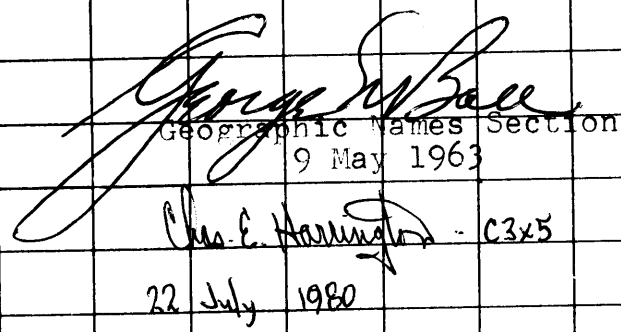 George M Ball
Geographic Names Section
9 May 1963
Chas. E. Harrington - C3x5
22 July 1980